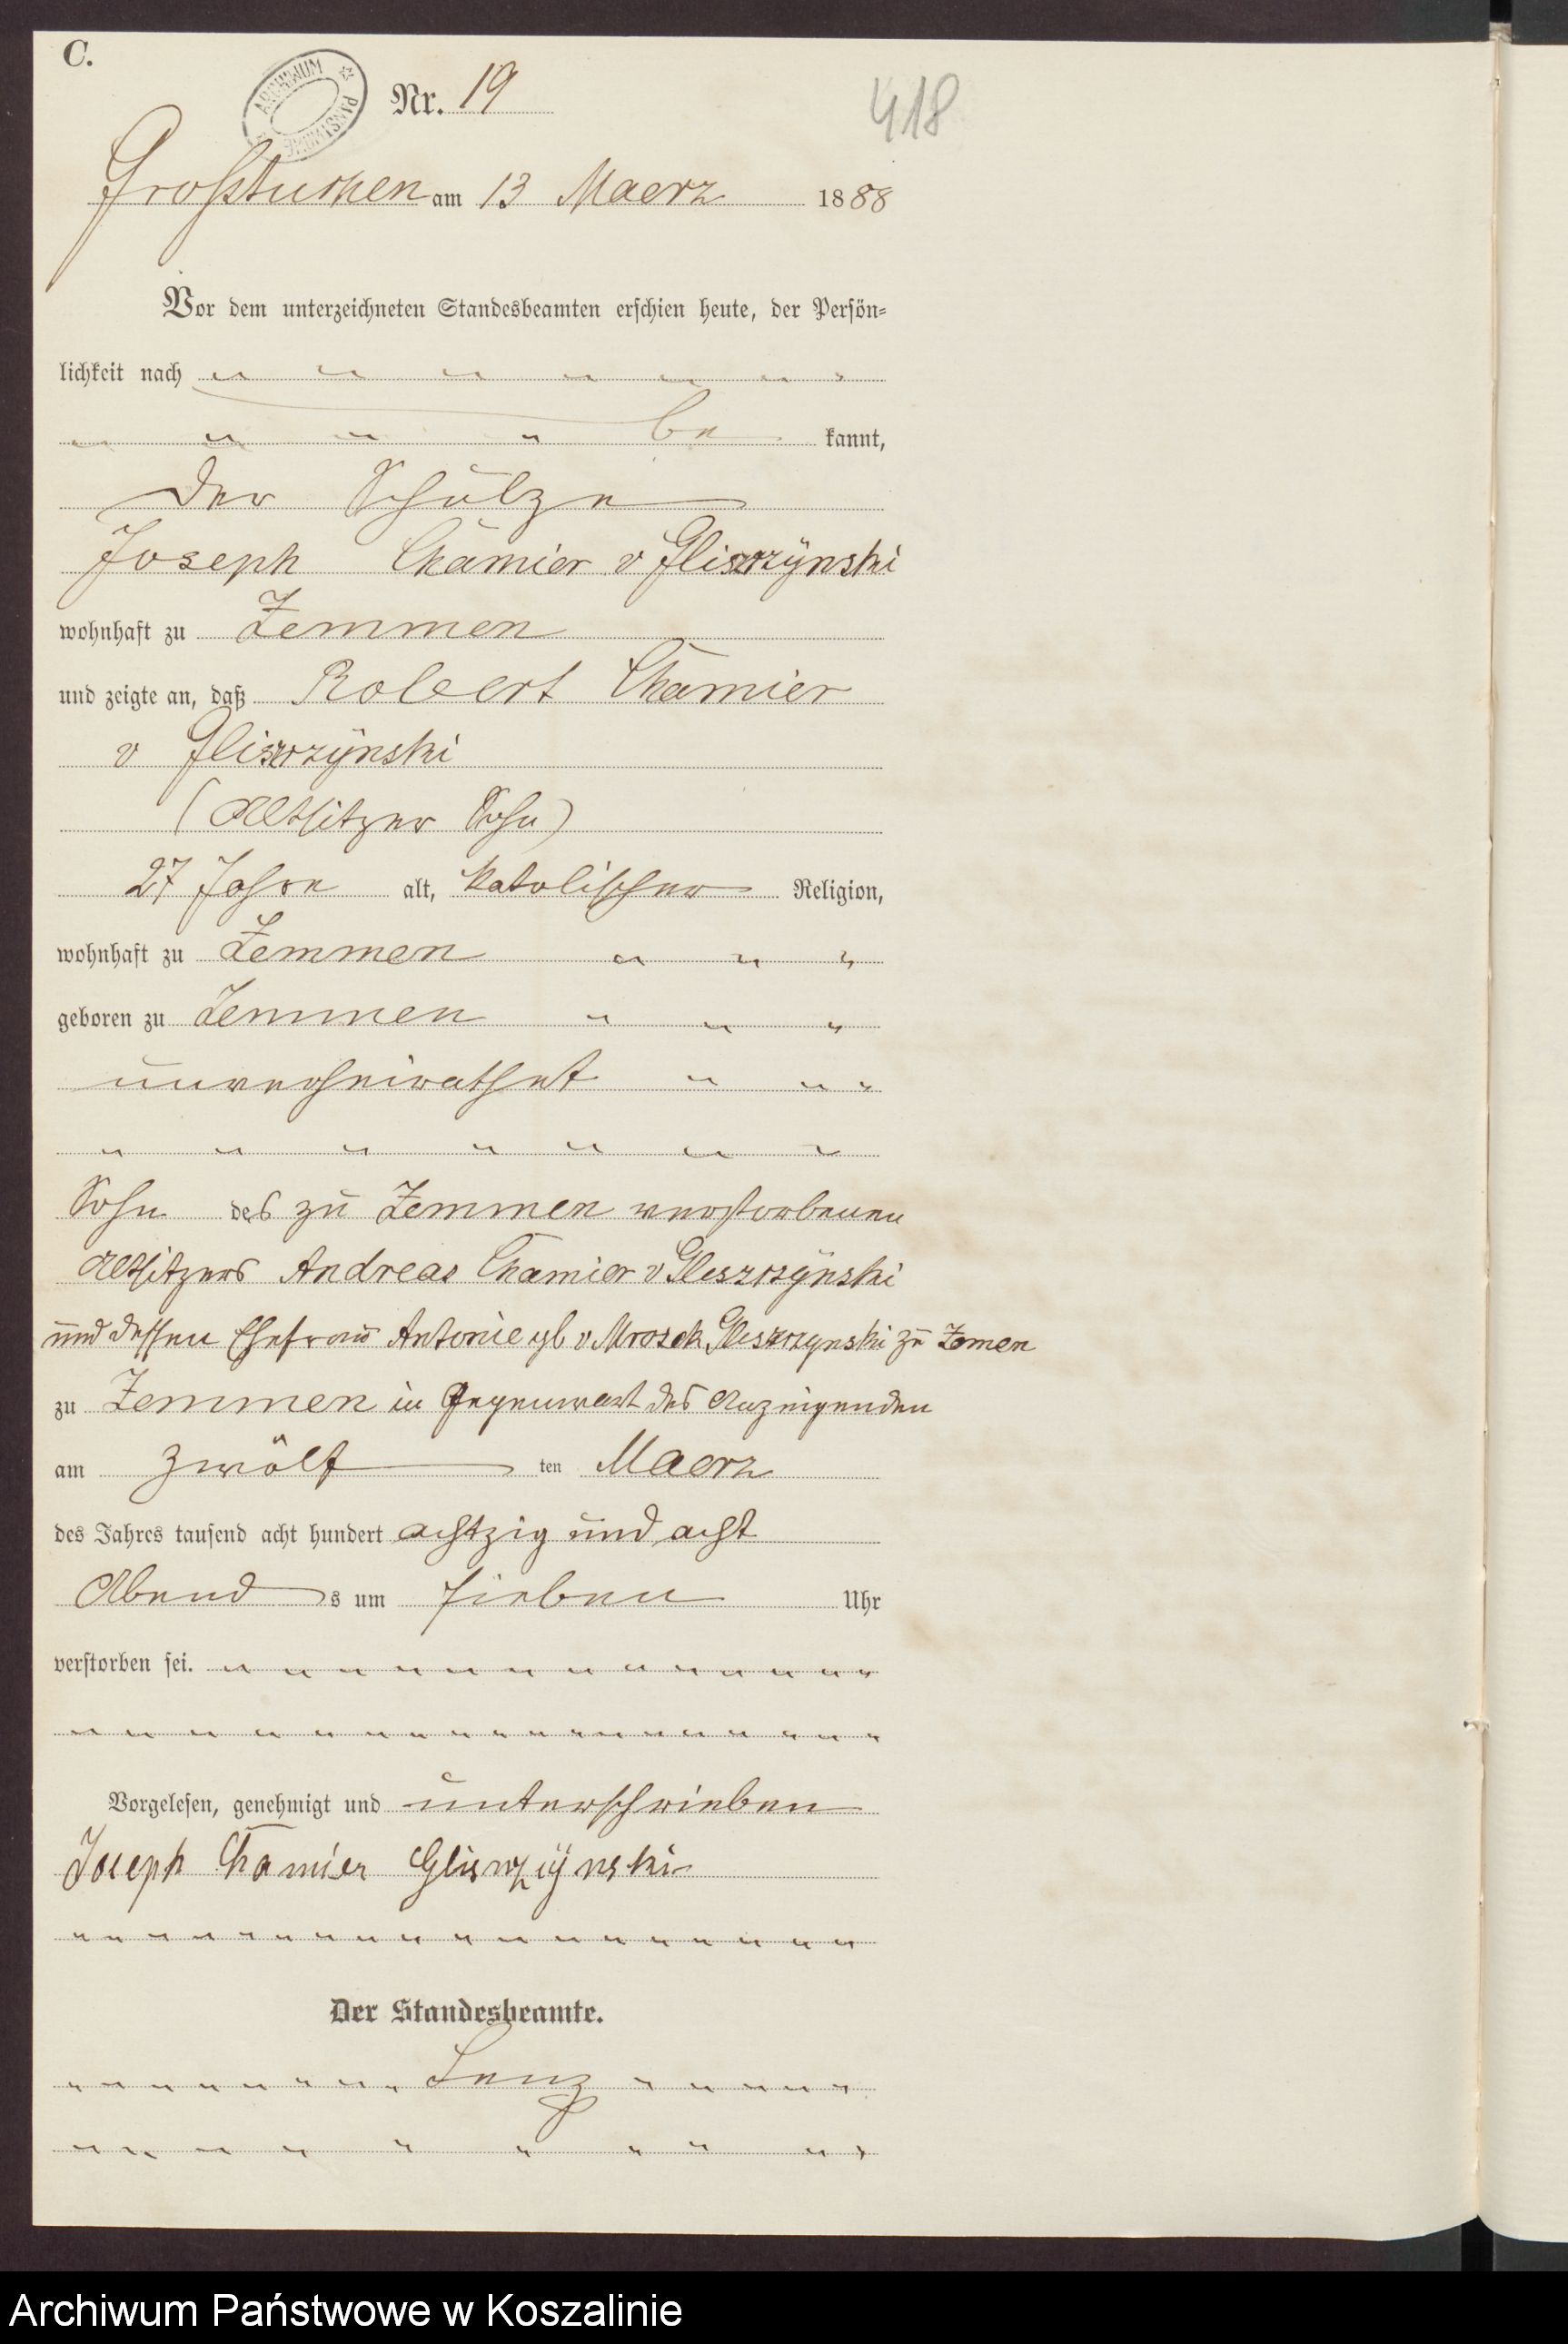 C.
ARCHIWUM PAŃSTWOWE
Nr. 19
418
Großtuchen am 13 Maerz 1888
Vor dem unterzeichneten Standesbeamten erschien heute, der Persön=
lichkeit nach
be kannt,
der Schulze
Joseph Chamier v Gliszczynski
wohnhaft zu Zemmen
und zeigte an, daß Robert Chamier
v Gliszczynski
(Altsitzer Sohn)
27 Jahre alt, katolischer Religion,
wohnhaft zu Zemmen
geboren zu Zemmen
unverheirathet
Sohn des zu Zemmen verstorbenen
Altsitzers Andreas Chamier v Gleszczynski
und dessen Ehefrau Antonie gb v Mrosek Gleszczynski zu Zemen
zu Zemmen in Gegenwart des Anzeigenden
am zwölf ten Maerz
des Jahres tausend acht hundert achtzig und acht
Abend s um sieben Uhr
verstorben sei.
Vorgelesen, genehmigt und unterschrieben
Joseph Chamier Gliszczynski
Der Standesbeamte.
Lenz
Archiwum Państwowe w Koszalinie